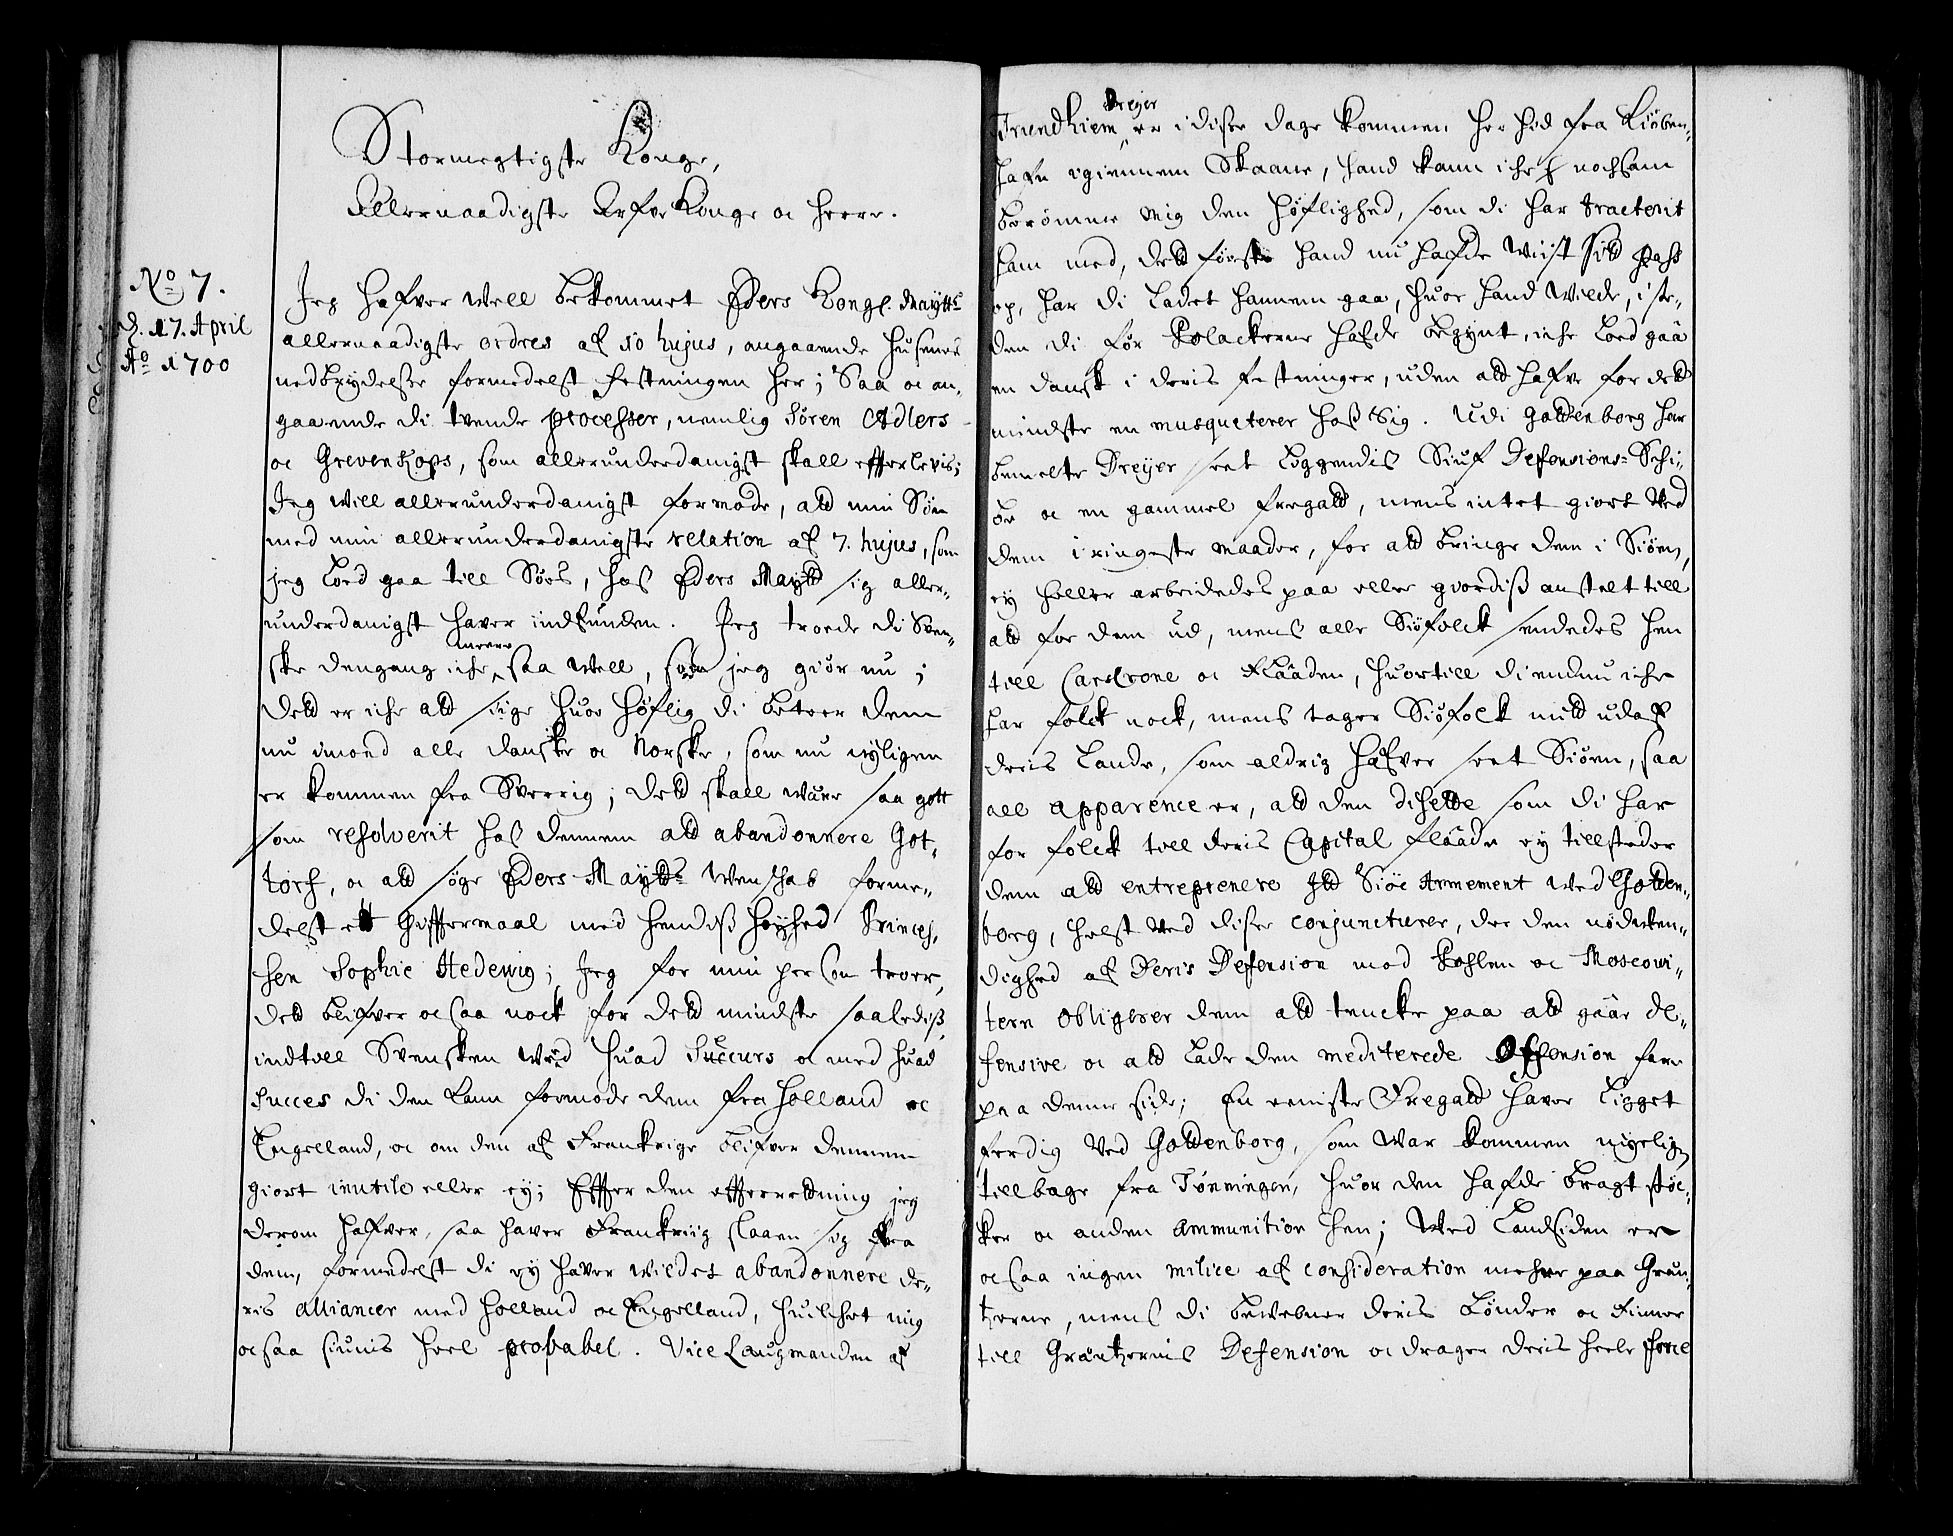 Stormegtigste Konge,
Allernaadigste Arfve Konge oc Herre.
No 7.
d. 17. April
Ao 1700
Jeg hafver well bekommet Eders Kongl. Maytts
allernaadigste ordres af 10 hujus, angaaende Husenes
nedbrydelsse formedelst festningen her; Saa oc an-
gaaende di tvende processer, nemlig Sören Adlers
oc Grevenkops, som allerunderdanigst skall efterlevis;
Jeg will allerunderdanigst formode, ald min Sön
med min allerunderdanigste relation af 7. hujus, som
jeg loed gaa till Söes, hos Eders Maytt sig aller-
underdanigst haver indfunden. Jeg troede di Sven-
ske dengang iche saa well, som jeg giör nu;
dett er iche ald sige huor höflig di beteer dem
nu imod alle danske oc Norske, som nu nyligen
er kommen fra Sverrig; dett skall were saa gott
som resolverit hos dennem ald abandonnere Got-
torf, oc ald söge Eders Maytts Wenskab forme-
delst ett Giffermaal med hendis Höyhed Princes-
sen Sophie Hedewig; Jeg for min person troer,
dett blifver ocsaa nock for dett mindste saaledis,
indtill Svensken weed huad Succurs oc med huad
Succes di den kann formode dem fra Holland oc
Engelland, oc om den af Frankrige blifver dennem
giort inutile eller ey; Effter den effterretning jeg
derom hafver, saa haver Frankriig slaaen sig fra
dem, formedelst di ey haver wildet abandonnere de-
ris alliancer med Holland oc Engelland, huilchet mig
ocsaa siunis heel probabel. Vice Laugmanden af
Dreyer
Trundhiem er i disse dage kommen her hid fra Kiöben-
hafn igiennem Skaane, hand kann iche nochsam
berömme mig den höflighed, som di har tracterit
ham med, dett förste hand nu hafde wiist sit Pass
op, har di ladet hannem gaa, huor hand wilde, i ste-
den di för Polackerne hafde begynt, iche loed gaa
en dansk i deris festninger, uden ald hafve for dett
mindste en musqueterer hos Sig. Udi Gottenborg har
bemelte Dreyer seet liggendis Siuf Defensions-Schi-
be oc en gammel fregatt, mens intet giort ved
dem i ringeste maader, for ald bringe dem i Siöen,
ey heller arbeidedes paa eller giordis anstalt till
ald före dem ud, mens alle Siöfolck sendedes hen
till Carlscrone oc Flaaden, huortill di endnu iche
har folck nock, mens tager Siöfolck mitt udaf
deris Lande, som aldrig hafver seet Siöen, saa
all apparence er, ald den disette som di har
for folck till deris Capital flaade ey tillsteder
dem ald entreprenere Itt Siöe Armement ved Gotten-
borg, helst ved disse conjuncturer, der den nödven-
dighed af Deris Defension mod Pohlen oc Moscowi-
tern obligerer dem ald tencke paa ald gaae de-
fensive oc ald lade den mediterede Offension fare
paa denne side; En eeniste Fregatt haver ligget
ferdig ved Gottenborg, som war kommen nyelig
tillbage fra Tönningen, huor den hafde bragt stöc-
ker oc anden ammunition hen; Wed Landsiden er
ocsaa ingen milice af consideration mehre paa Gren-
tzerne, mens di bevebner deris bönder oc Finner
till Grentzernis Defension oc drager deris heele force